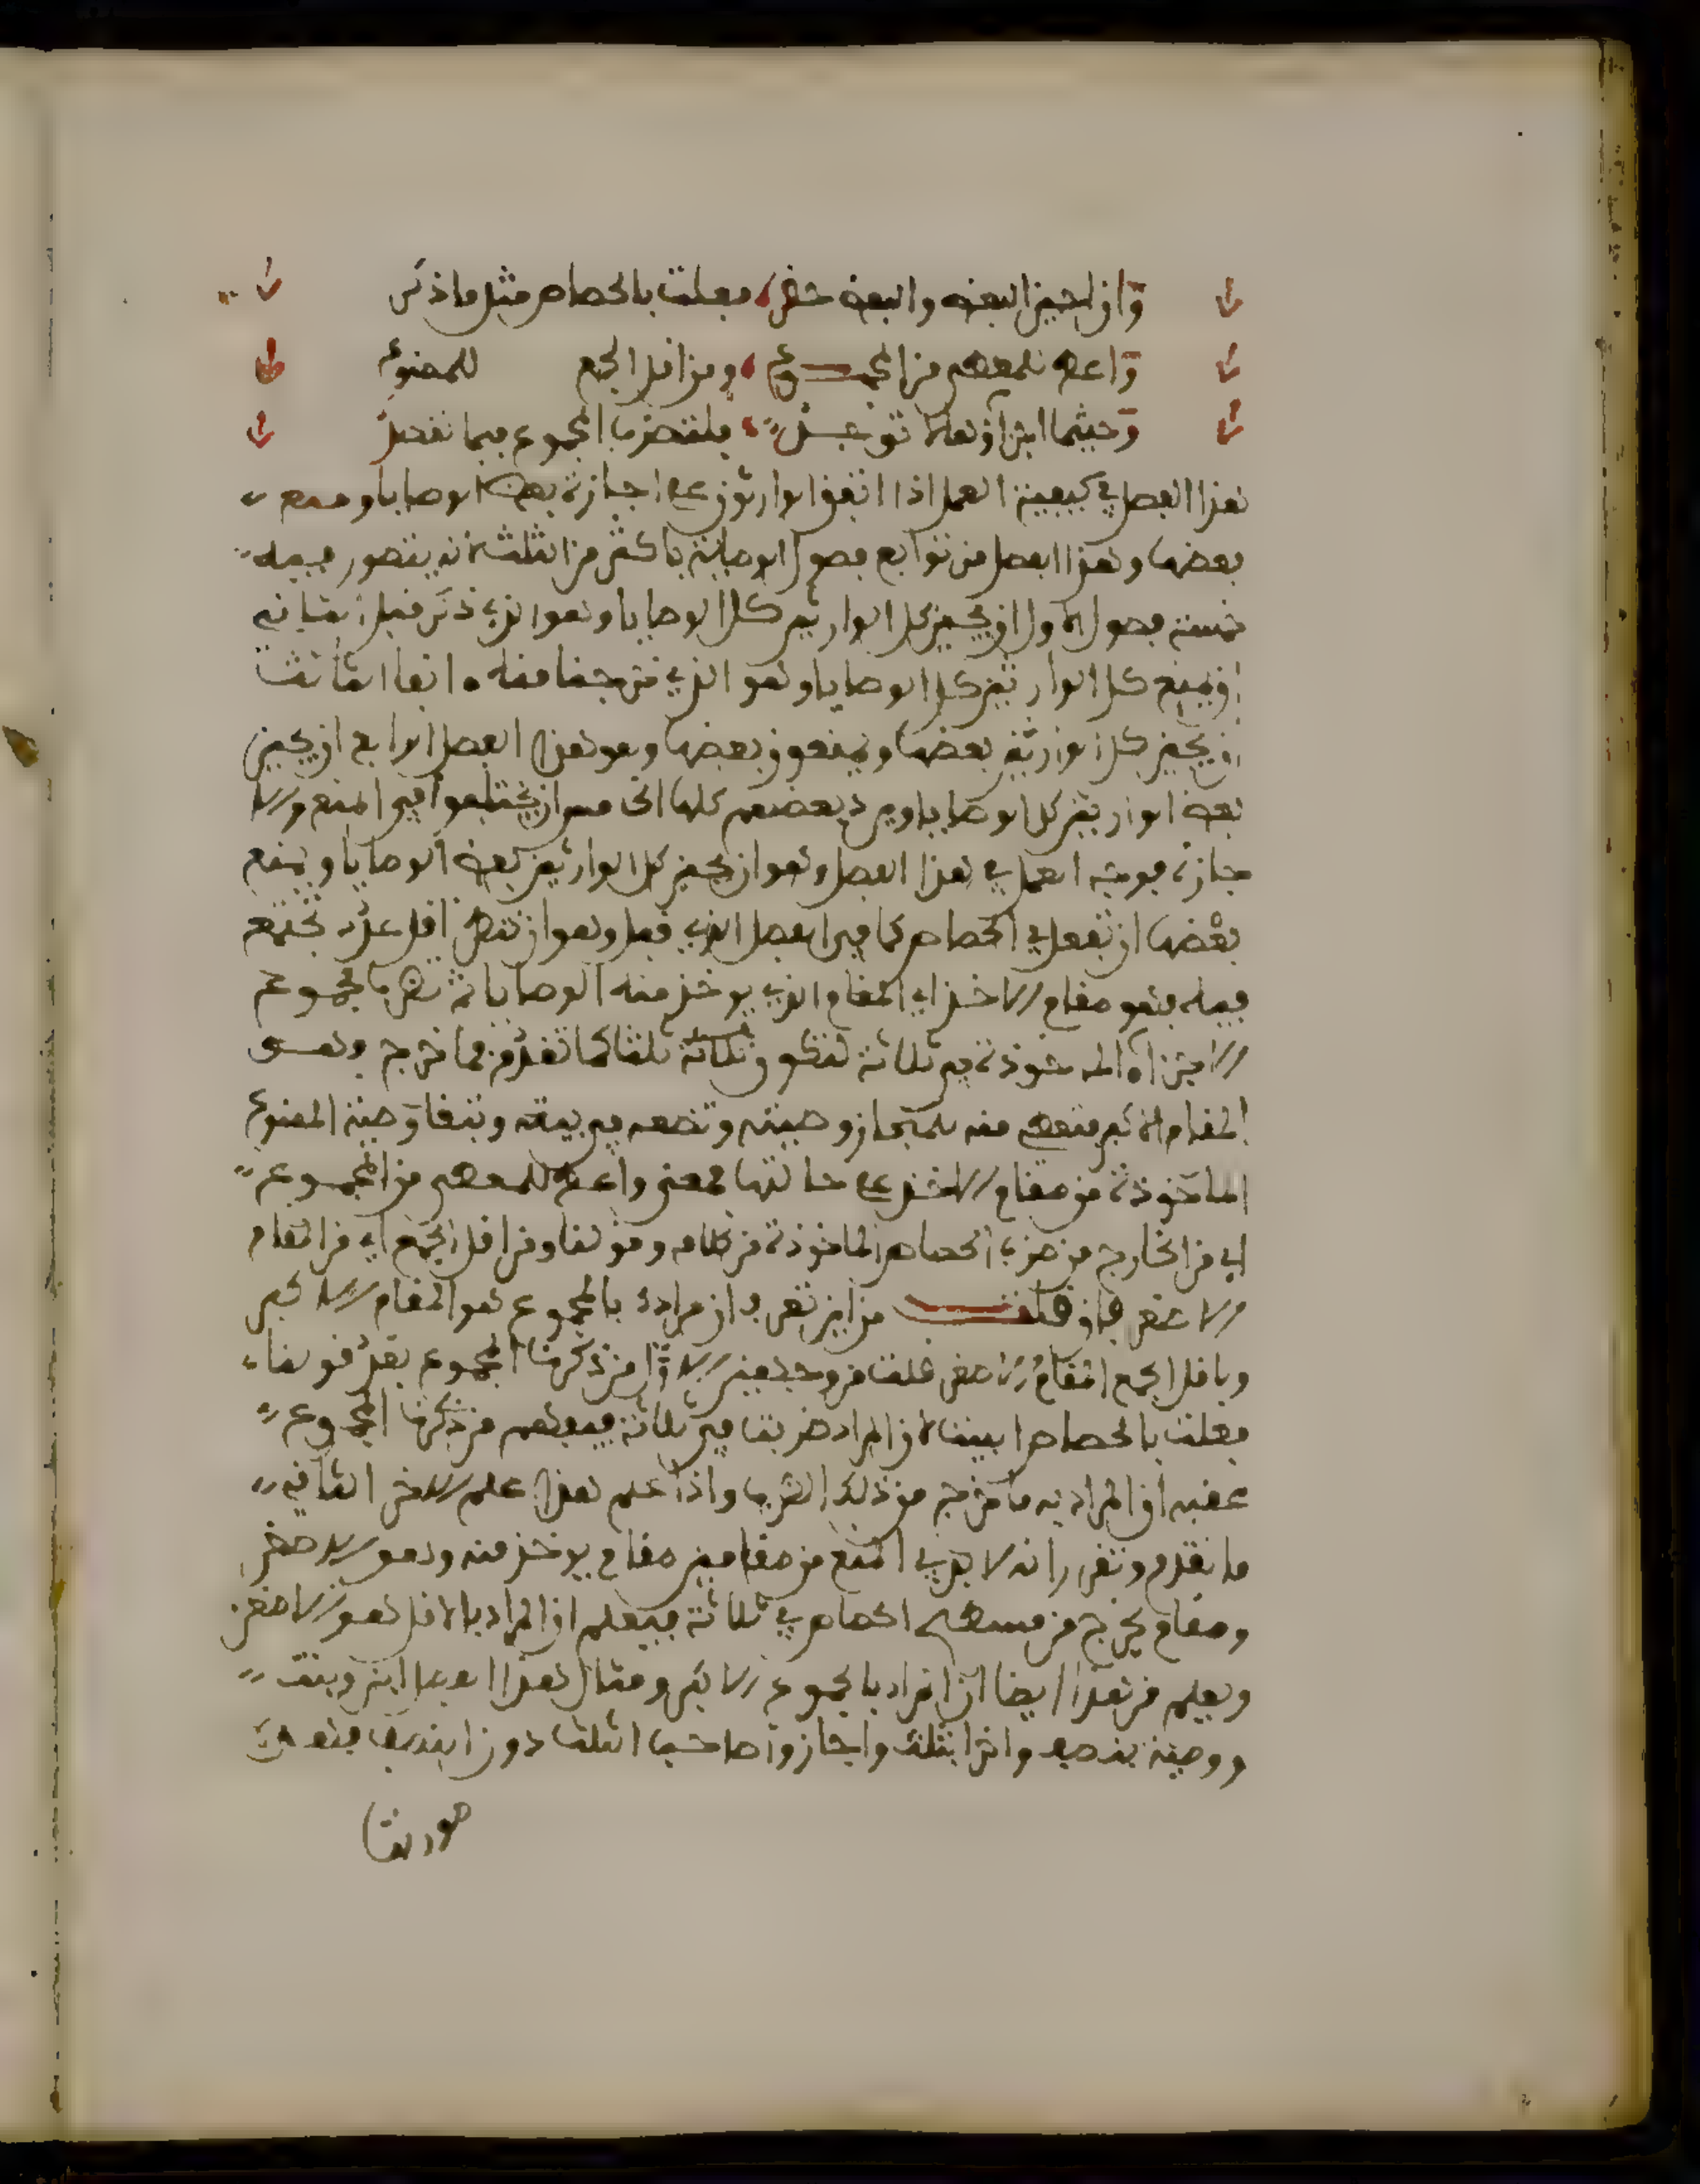 وان اجيز البعض والبعض حظر فعلت بالحصاص مثل ما ذكر
واعط للمعطى من المجموع ومن اقل الجمع للممنوع
وحيثما ابن او هلا توجد فلتضرب المجموع فيما تفصل
هذا الفصل في كيفية العمل اذا اتفق الوارثون على اجازة بعض الوصايا ومنع
بعضها وهذا الفصل من توابع فصول الوصاية باكثر من الثلث لانه يتصور فيه
خمسة فصول الاول ان يجيز كل الوارثين كل الوصايا وهو الذي ذكر قبل الثاني
ان يمنع كل الوارثين كل الوصايا وهو الذي خرجنا منه انفا الثالث
ان يجيز كل الوارثين بعضها ويمنعون بعضها وهو هذا الفصل الرابع ان يجيز
بعض الوارثين كل الوصايا ويرد بعضهم كلها الخامس ان يختلفوا في المنع والا
جازة فوجه العمل في هذا الفصل وهو ان يجيز كل الوارثين بعض الوصايا ويمنع
بعضها ان تفعل في الحصاص كما في الفصل الذي قبل وهو ان تنظر اقل عدد تجتمع
فيه فهو مقام الاخذ اي المقام الذي يوخذ منه الوصايا ثم تضرب مجموع
الاجزاء الماخوذة في ثلاثة لتكون ثلاثة ثلثا كما تقدم فما خرج وهو
المقام الاكبر فتعطي منه للمجاز وصيته وتضعه في بيته وتبقا وصية الممنوع
الماخوذة من مقام الاخذ على حالتها فمعنى واعط للمعطى من المجموع
اي من الخارج من ضرب الحصاص الماخوذة من كلامه وقولنا ومن اقل الجمع اي من المقام
الاصغر فان قلت من اين تقرر ان مراده بالمجموع هو المقام الاكبر
وباقل الجمع المقام الاصغر قلت من وجهين الاول من ذكرنا المجموع بعد قولنا
فعلت بالحصاص ا بينا لان المراد ضربنا في ثلاثة فيفهم من ذكرنا المجموع
عقبه ان المراد به ما خرج من ذلك الضرب واذا علم هذا علم الاخر الثاني
ما تقدم وتقرر انه لا بد في المنع من مقامين مقام يوخذ منه وهو الاصغر
ومقام يخرج من مسطح الحصاص في ثلاثة فيعلم ان المراد بالاقل هو الاصغر
ويعلم من هذا ايضا ان المراد بالمجموع الاكبر ومثال هذا العمل ابن وبنت
ووصية بنصف واخرى بثلث واجازوا صاحب الثلث دون النصف فهو
صورتها